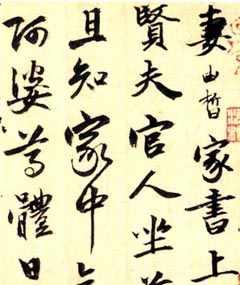 妻由皙家書上
賢夫官人坐
且知家中
阿婆尊體日